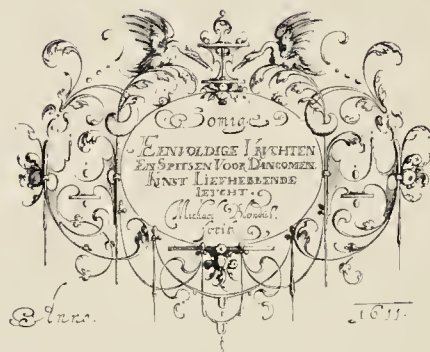 Somige
EENVOLDIGE VRUCHTEN
EN SPITSEN VOOR DANCOMEN
KUNST LIEFHEBBENDE
IEUCHT.
Michiel
fecit
Anno.
1611.